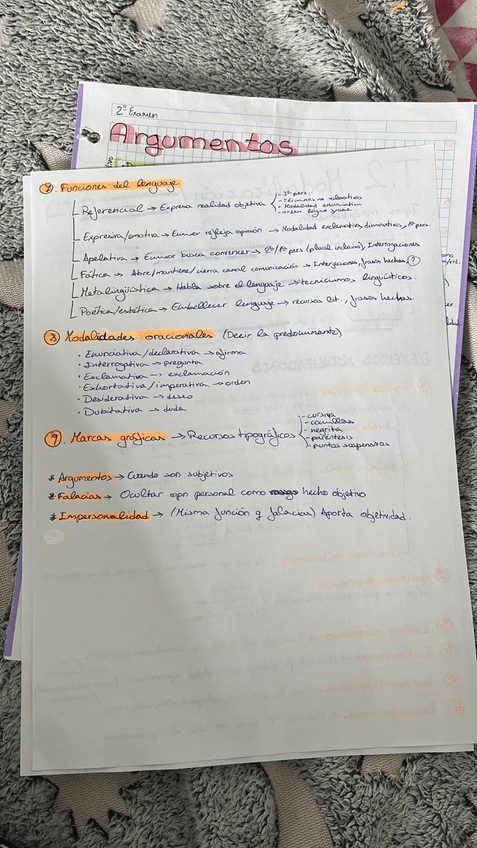 2º Examen
Argumentos
7. Funciones del lenguaje
Referencial → Expresa realidad objetiva
- 3ª pers.
- Términos no valorativos
- Modalidad enunciativa
- orden lógico frase
Expresiva/emotiva → Emisor refleja opinión → Modalidad exclamativa, diminutivos, 1ª pers.
Apelativa → Emisor busca convencer → 2ª/1ª pers (plural inclusivo), Interrogaciones
Fática → Abre/mantiene/cierra canal comunicación → Interjecciones, frases hechas (?)
Metalingüística → Habla sobre el lenguaje → tecnicismos lingüísticos.
Poética/estética → Embellecer lenguaje → recursos lit., frases hechas.
8. Modalidades oracionales (Decir la predominante)
· Enunciativa/declarativa → afirma
· Interrogativa → pregunta
· Exclamativa → exclamación
· Exhortativa/imperativa → orden
· Desiderativa → deseo
· Dubitativa → duda
9. Marcas gráficas → Recursos tipográficos
- cursiva
- comillas
- negrita
- paréntesis
- puntos suspensivos
* Argumentos → Cuando son subjetivos
* Falacias → Ocultar opn personal como hecho objetivo
* Impersonalidad → (Misma función q falacias) Aporta objetividad.